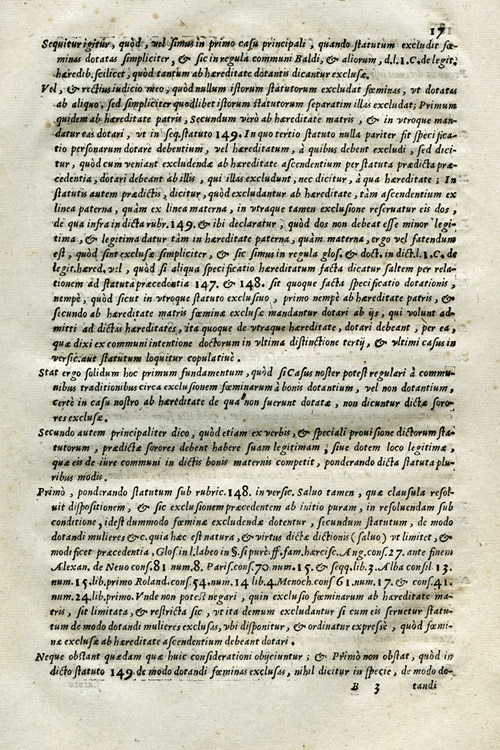 17
Sequitur igitur, quòd, vel simus in primo casu principali, quando statutum excludit fœ-
minas dotatas simpliciter, & sic in regula communi Baldi, & aliorum, d.l.1.C.de legit.
hæredib. scilicet, quòd tantum ab hæreditate dotantis dicantur exclusæ.
Vel, & rectius iudicio meo, quòd nullum istorum statutorum excludat fœminas, vt dotatas
ab aliquo, sed simpliciter quodlibet istorum statutorum separatim illas excludat; Primum
quidem ab hæreditate patris, Secundum verò ab hæreditate matris, & in vtroque man-
datur eas dotari, vt in seq. statuto 149. In quo tertio statuto nulla pariter fit specifica-
tio personarum dotare debentium, vel hæreditatum, à quibus debent excludi, sed dici-
tur, quòd cum veniant excludendæ ab hæreditate ascendentium per statuta prædicta præ-
cedentia, dotari debeant ab illis, qui illas excludunt, nec dicitur, à qua hæreditate; In
statutis autem prædictis, dicitur, quòd excludantur ab hæreditate, tàm ascendentium ex
linea paterna, quàm ex linea materna, in vtraque tamen exclusione reseruatur eis dos,
de qua infra in dicta rubr. 149. & ibi declaratur, quòd dos non debeat esse minor legi-
tima, & legitima datur tàm in hæreditate paterna, quàm materna, ergo vel fatendum
est, quòd sint exclusæ simpliciter, & sic simus in regula glos. & doct. in dict.l.1.C. de
legit. hæred. vel, quòd si aliqua specificatio hæreditatum facta dicatur saltem per rela-
tionem ad statuta præcedentia 147. & 148. sit quoque facta specificatio dotationis,
nempè, quòd sicut in vtroque statuto exclusiuo, primo nempè ab hæreditate patris, &
secundo ab hæreditate matris fœminæ exclusæ mandantur dotari ab ijs, qui volunt ad-
mitti ad dictas hæreditates, ita quoque de vtraque hæreditate, dotari debeant, per ea,
quæ dixi ex communi intentione doctorum in vltima distinctione tertij, & vltimi casus in
versic. aut statutum loquitur copulatiuè.
Stat ergo solidum hoc primum fundamentum, quòd si Casus noster potest regulari à commu-
nibus traditionibus circa exclusionem fœminarum à bonis dotantium, vel non dotantium,
certè in casu nostro ab hæreditate de qua non fuerunt dotatæ, non dicuntur dictæ soro-
res exclusæ.
Secundo autem principaliter dico, quòd etiam ex verbis, & speciali prouisione dictorum sta-
tutorum, prædictæ sorores debent habere suam legitimam; siue dotem loco legitimæ,
quæ eis de iure communi in dictis bonis maternis competit, ponderando dicta statuta plu-
ribus modis.
Primò, ponderando statutum sub rubric. 148. in versic. Saluo tamen, quæ clausula resol-
uit dispositionem, & sic exclusionem præcedentem ab initio puram, in resoluendam sub
conditione, idest dummodo fœminæ excludendæ dotentur, secundum statutum, de modo
dotandi mulieres &c. quia hæc est natura, & virtus dictæ dictionis (saluo) vt limitet, &
modificet præcedentia, Glos. in l. labeo in §. si purè. ff. fam. hærcisc. Ang. cons. 27. ante finem
Alexan. de Neuo cons. 81 num. 8. Paris. cons. 70. num. 15. & seqq. lib. 3. Alba consil 13.
num. 15. lib. primo Roland. cons. 54. num. 14 lib. 4. Menoch. cons 61. num. 17. & cons. 41.
num. 24. lib. primo. Vnde non potest negari, quin exclusio fœminarum ab hæreditate ma-
tris, sit limitata, & restricta sic, vt ita demum excludantur si cum eis seruetur statu-
tum de modo dotandi mulieres exclusas, vbi disponitur, & ordinatur expressè, quòd fœmi-
næ exclusæ ab hæreditate ascendentium debeant dotari.
Neque obstant quædam quæ huic considerationi obijciuntur; & Primò non obstat, quòd in
dicto statuto 149. de modo dotandi fœminas exclusas, nihil dicitur in specie, de modo do-
B 3 tandi